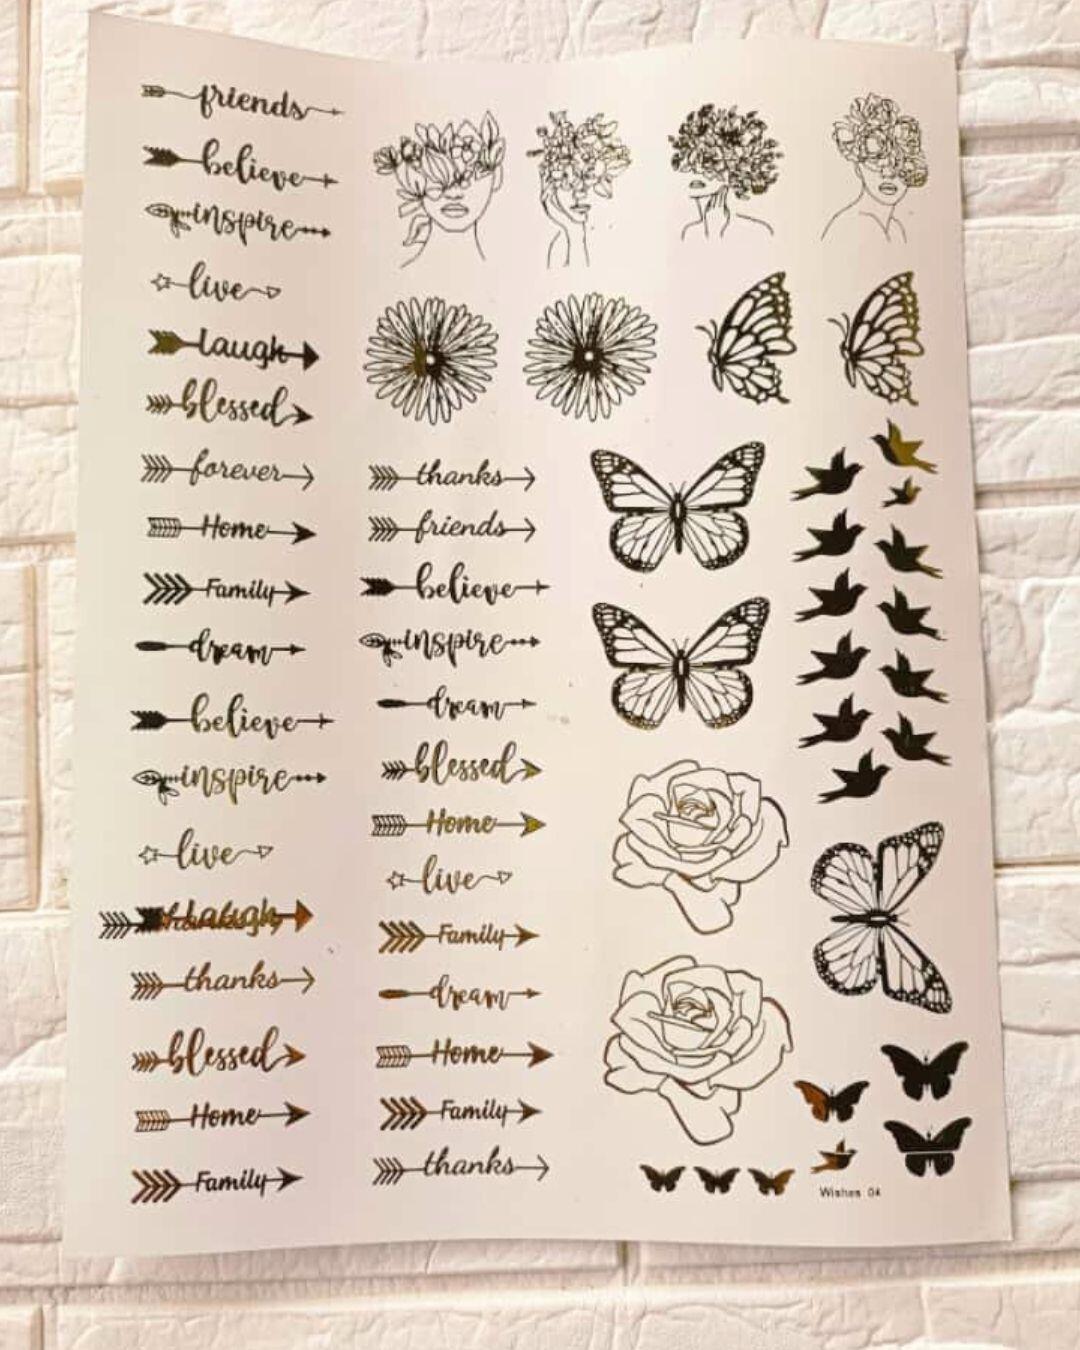 friends
believe
inspire
live
Laugh
blessed
forever
Home
Family
dream
believe
inspire
live
Laugh
thanks
blessed
Home
Family
thanks
friends
believe
inspire
dream
blessed
Home
live
Family
dream
Home
Family
thanks
Wishes 04